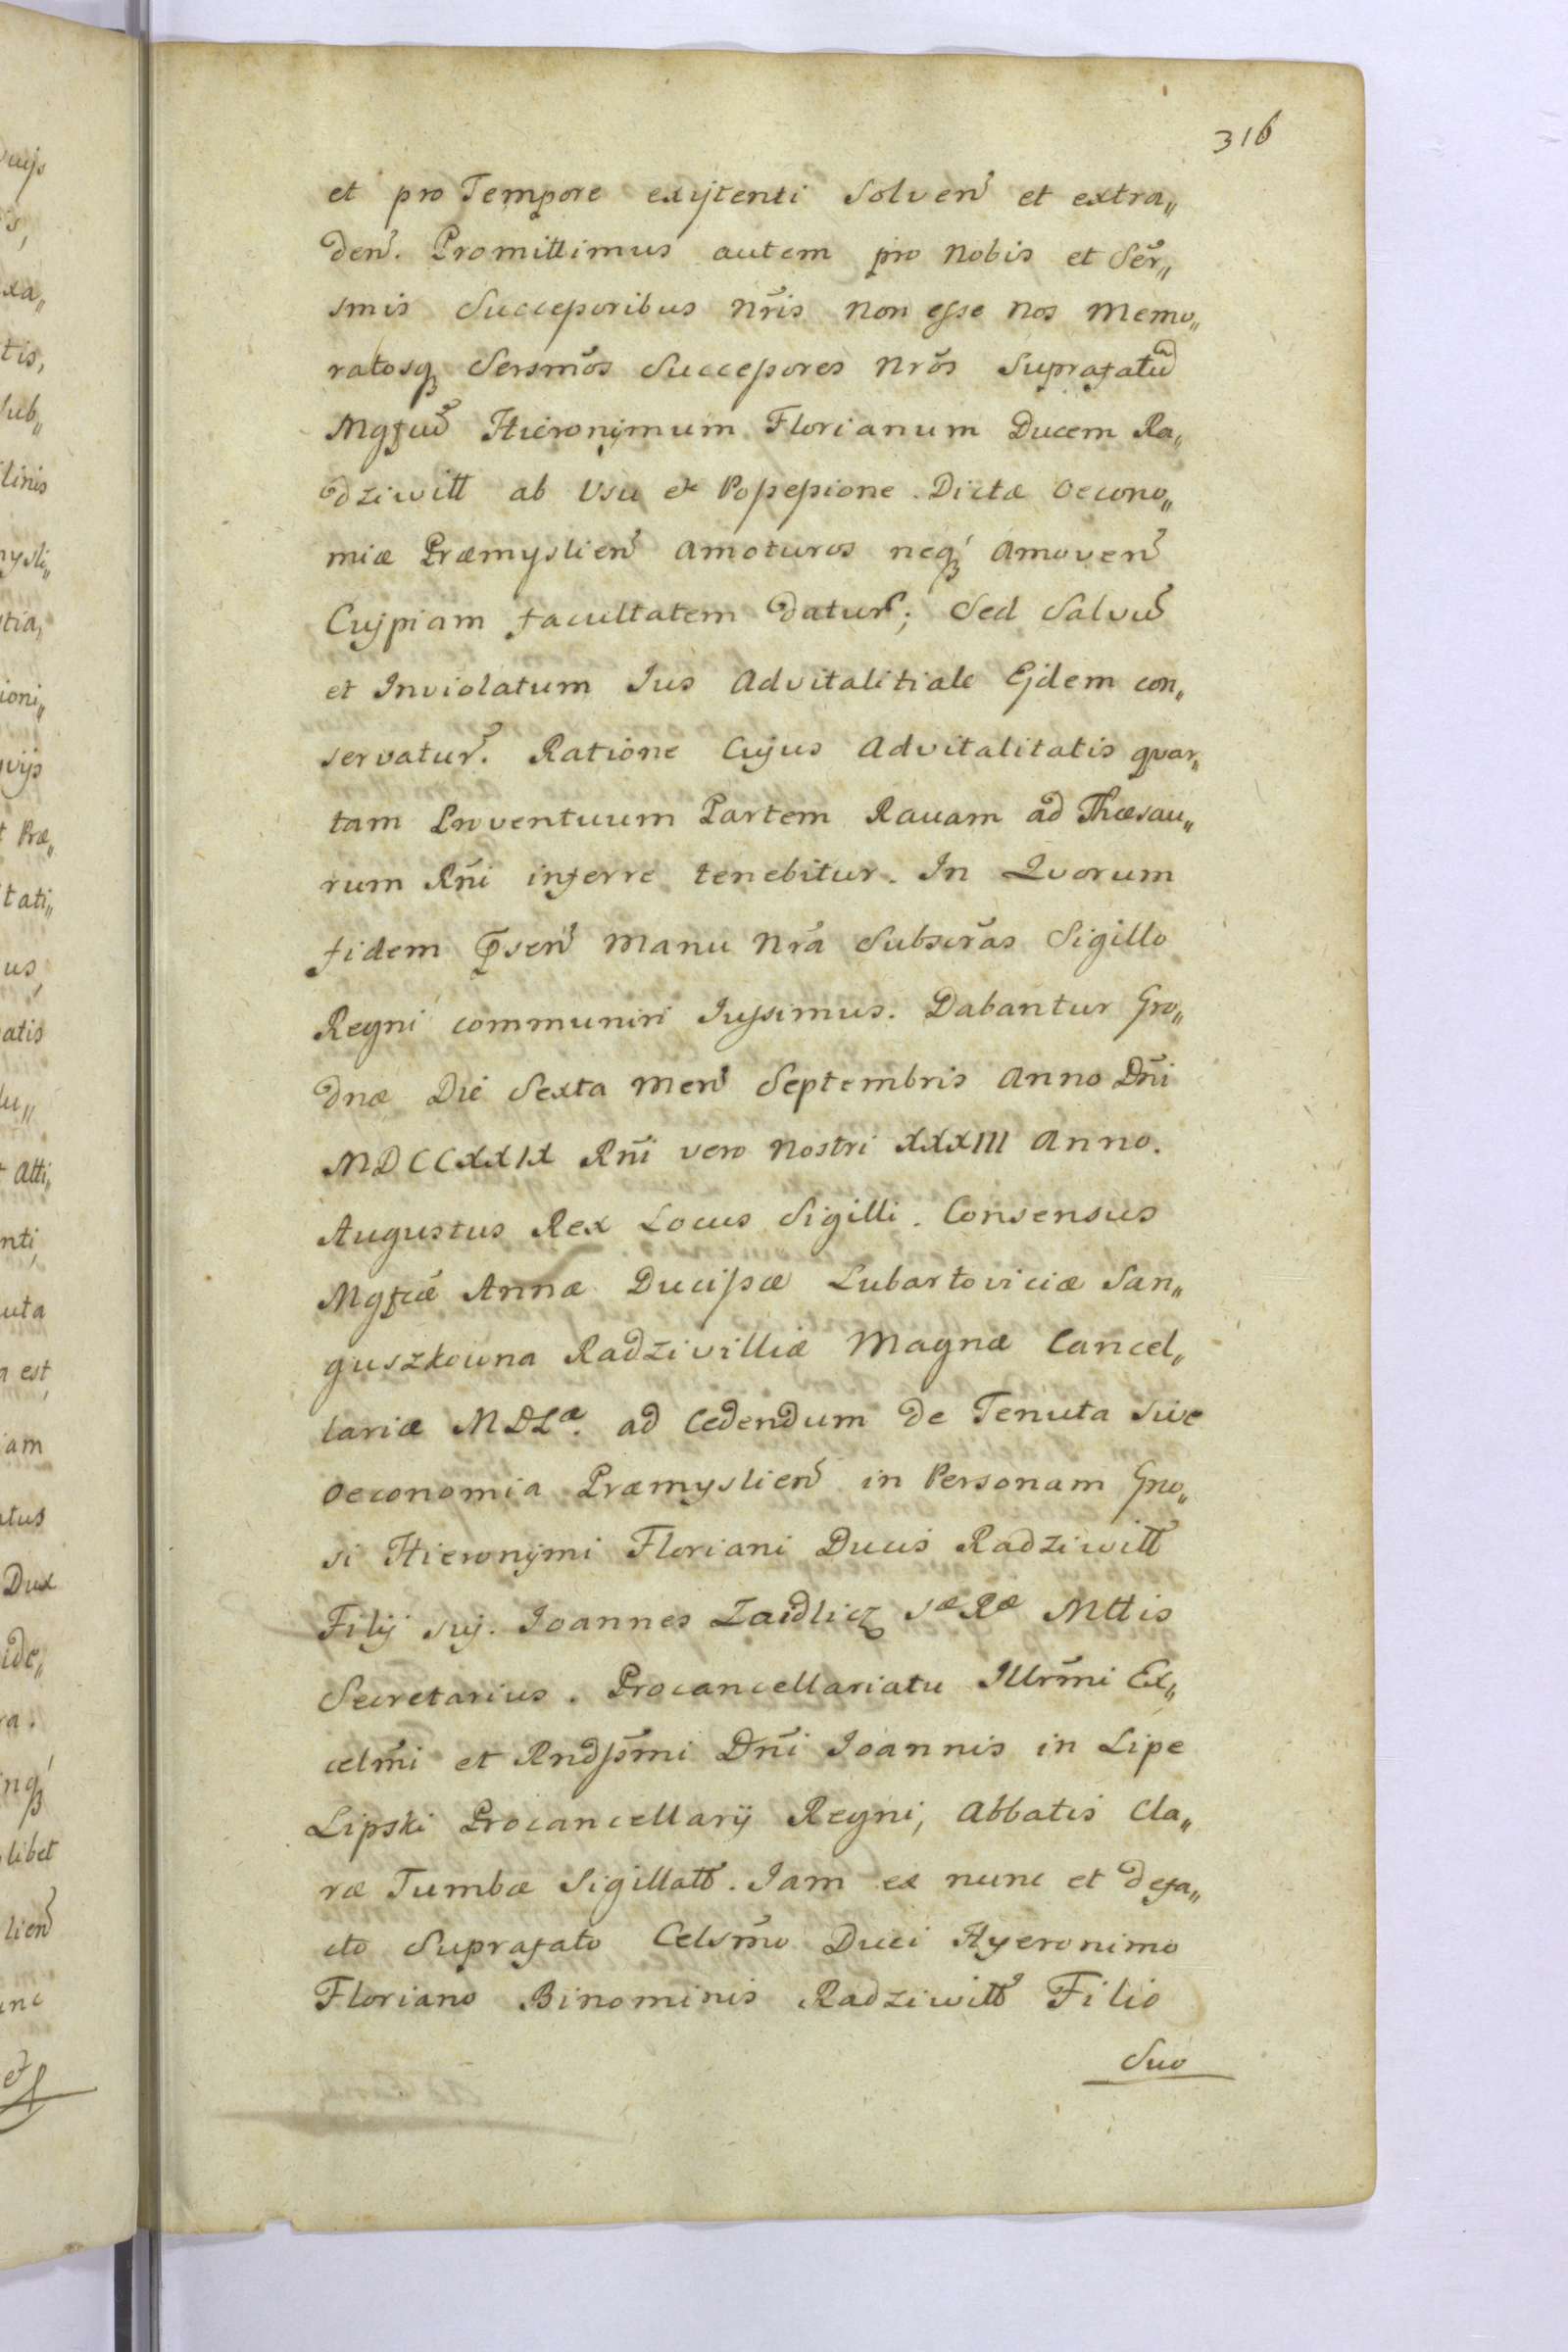 316
et pro Tempore exystenti Solven̄ et extra„
den̄. Promittimus autem pro nobis et Ser̄„
smis Successoribus nr̄is non esse nos memo„
ratosq̃ Sersmōs Successores nrōs Suprafatū
Mgfcū Hieronymum Florianum Ducem Ra„
dziwiłł ab Usu et Possessione Dictæ Oecono„
miæ Præmyslien̄ amoturos neq̃ amoven̄
Cujpiam facultatem datur̄; Sed Salvū
et Inviolatum Jus Advitalitiale Ejdem con„
servatur̄. Ratione Cujus Advitalitatis quar„
tam Proventuum Partem Ravam ad Thæsau„
rum Rn̄i inferre tenebitur. In Quorum
fidem P̄sen̄ Manu Nrā Subscrās Sigillo
Regni communiri Jussimus. Dabantur Gro„
dnæ Die Sexta Men̄ Septembris Anno Dn̄i
MDCCXXIX Rn̄i vero Nostri XXXIII Anno.
Augustus Rex Locus Sigilli. Consensus
Mgfcæ Annæ Ducissæ Lubartoviciæ San„
guszkowna Radziwilliæ Magnæ Cancel„
lariæ MDLæ. ad Cedendum de Tenuta Sive
Oeconomia Præmyslien̄ in Personam Gno„
si Hieronymi Floriani Ducis Radziwiłł
Filij suj. Joannes Zaidlicz Sæ Ræ Mttis
Secretarius. Procancellariatu Illrm̄i Ex„
celm̄i et Rndssm̄i Dn̄i Joannis in Lipe
Lipski Procancellarij Regni, Abbatis Cla„
ræ Tumbæ Sigillatt. Jam ex nunc et defa„
cto Suprafato Celsm̄o Duci Hyeronimo
Floriano Binominis Radziwiłł Filio
Suo